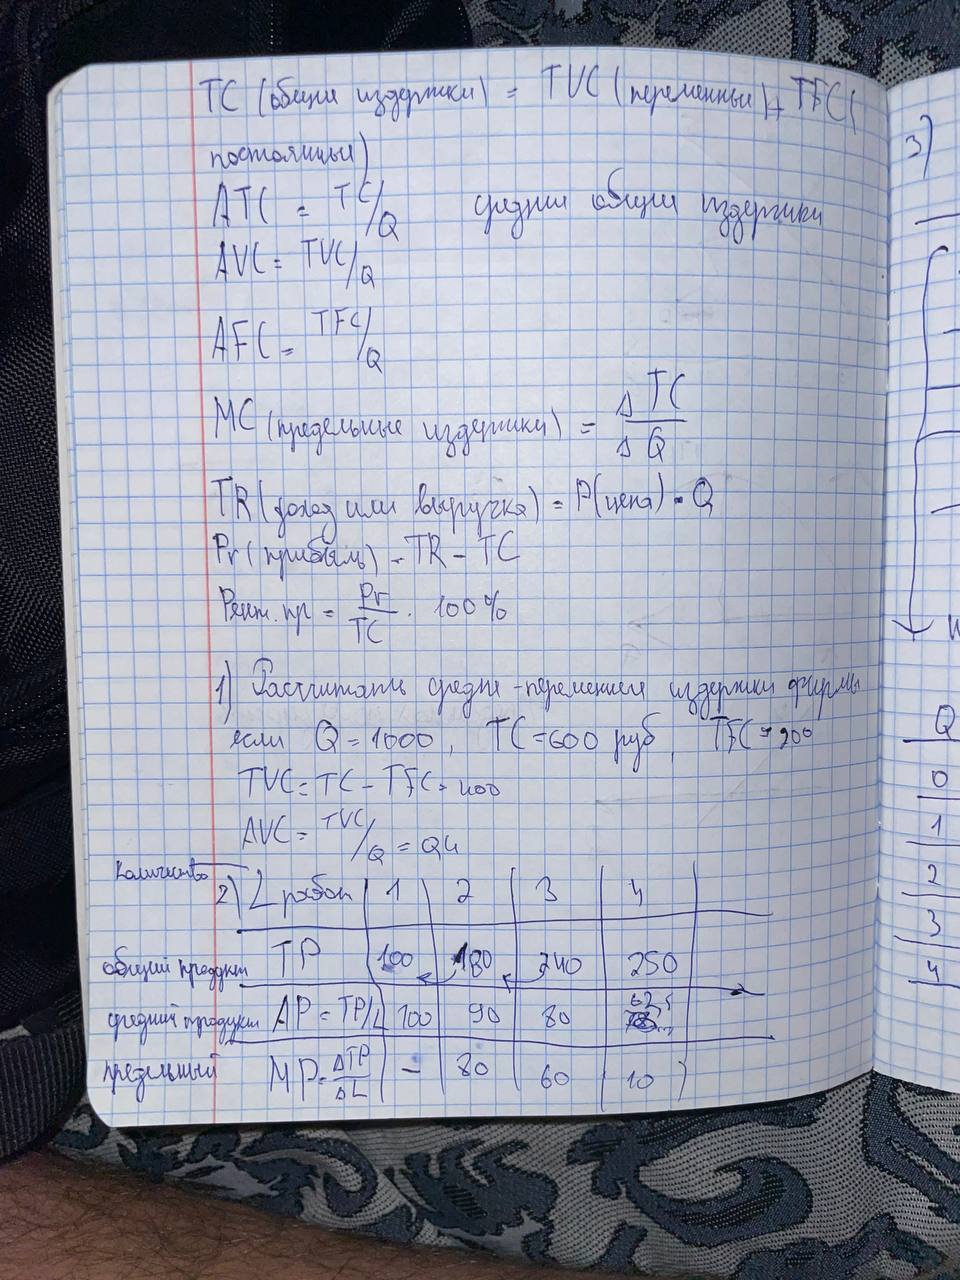 TC (общие издержки) = TVC (переменные) + TFC (
постоянные)
ATC = TC/Q средние общие издержки
AVC = TVC/Q
AFC = TFC/Q
MC (предельные издержки) = ΔTC/ΔQ
TR (доход или выручка) = P(цена) · Q
Pr (прибыль) = TR - TC
Рент. пр = Pr/TC · 100%
1) Рассчитать средне-переменные издержки фирмы
если Q = 1000, TC = 600 руб, TFC = 200
TVC = TC - TFC = 400
AVC = TVC/Q = 0,4
Количество
2) L работ 1 2 3 4
общий продукт TP 100 180 240 250
средний продукт AP = TP/L 100 90 80 62,5
предельный MP = ΔTP/ΔL - 80 60 10
3)
Q
0
1
2
3
4